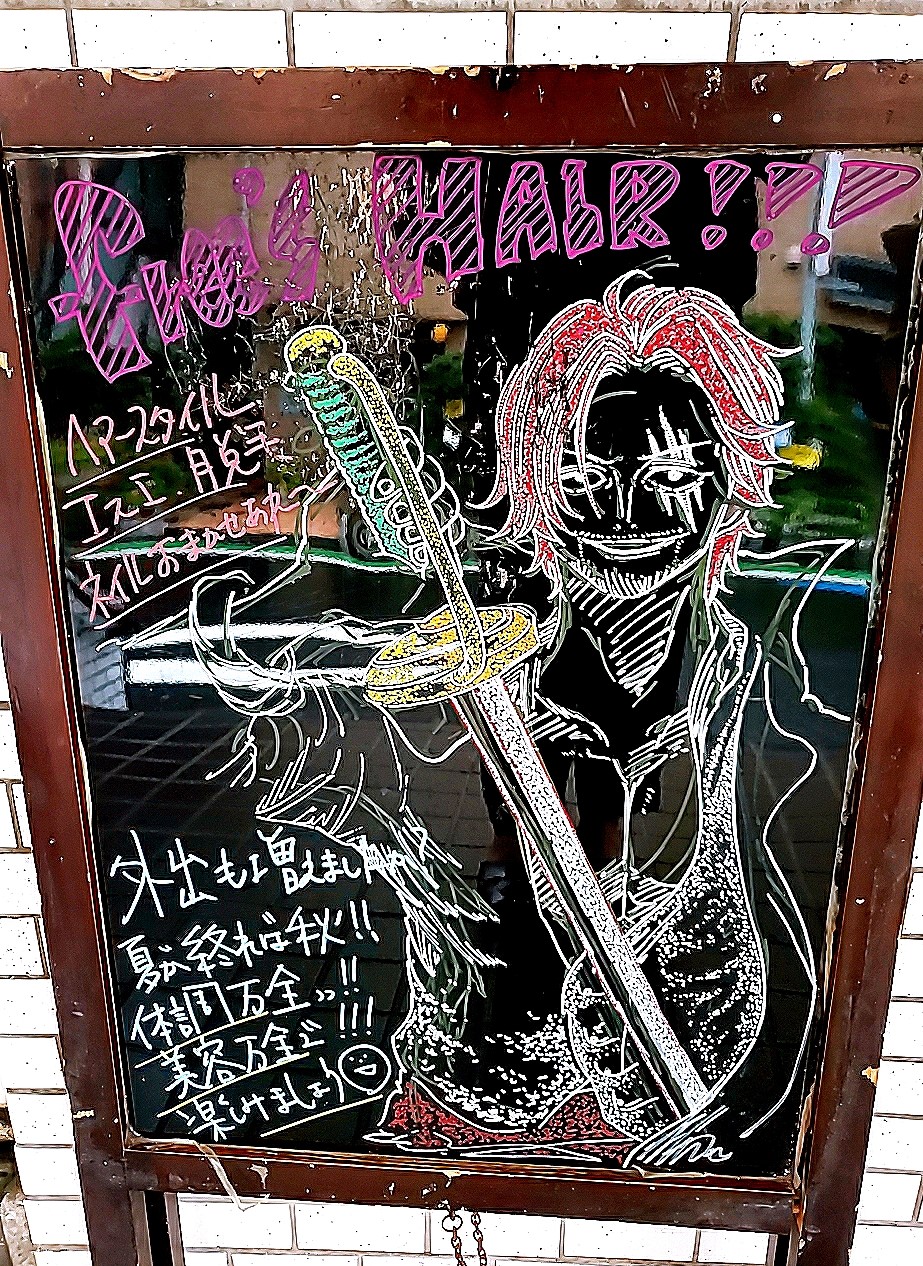 HAIR!!?
ヘアースタイル
エステ・脱毛
ネイルおまかせあれ〜
外出も増えました
夏が終れば秋!!
体調万全で!!
美容万全で!!!
楽しみましょう